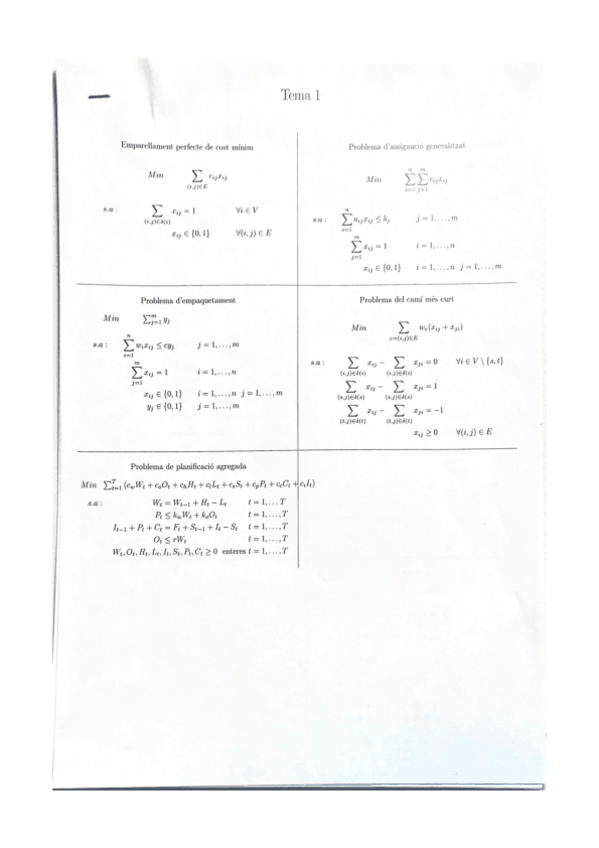 Tema 1
Emparellament perfecte de cost mínim
Min ∑_{(i,j)∈E} c_{ij}x_{ij}
s.a : ∑_{(i,j)∈δ(i)} x_{ij} = 1 ∀i ∈ V
x_{ij} ∈ {0, 1} ∀(i, j) ∈ E
Problema d'assignació generalitzat
Min ∑_{i=1}^{n} ∑_{j=1}^{m} c_{ij}x_{ij}
s.a : ∑_{i=1}^{n} a_{ij}x_{ij} ≤ b_j j = 1, . . . , m
∑_{j=1}^{m} x_{ij} = 1 i = 1, . . . , n
x_{ij} ∈ {0, 1} i = 1, . . . , n j = 1, . . . , m
Problema d'empaquetament
Min ∑_{j=1}^{m} y_j
s.a : ∑_{i=1}^{n} w_i x_{ij} ≤ cy_j j = 1, . . . , m
∑_{j=1}^{m} x_{ij} = 1 i = 1, . . . , n
x_{ij} ∈ {0, 1} i = 1, . . . , n j = 1, . . . , m
y_j ∈ {0, 1} j = 1, . . . , m
Problema del camí més curt
Min ∑_{e=(i,j)∈E} w_e(x_{ij} + x_{ji})
s.a : ∑_{(i,j)∈δ(i)} x_{ij} − ∑_{(i,j)∈δ(i)} x_{ji} = 0 ∀i ∈ V \ {s, t}
∑_{(s,j)∈δ(s)} x_{ij} − ∑_{(s,j)∈δ(s)} x_{ji} = 1
∑_{(t,j)∈δ(t)} x_{ij} − ∑_{(t,j)∈δ(t)} x_{ji} = −1
x_{ij} ≥ 0 ∀(i, j) ∈ E
Problema de planificació agregada
Min ∑_{t=1}^{T} (c_wW_t + c_oO_t + c_hH_t + c_lL_t + c_sS_t + c_pP_t + c_cC_t + c_iI_t)
s.a : W_t = W_{t−1} + H_t − L_t t = 1, . . . T
P_t ≤ k_wW_t + k_oO_t t = 1, . . . , T
I_{t−1} + P_t + C_t = F_t + S_{t−1} + I_t − S_t t = 1, . . . , T
O_t ≤ rW_t t = 1, . . . , T
W_t, O_t, H_t, L_t, I_t, S_t, P_t, C_t ≥ 0 enteres t = 1, . . . , T